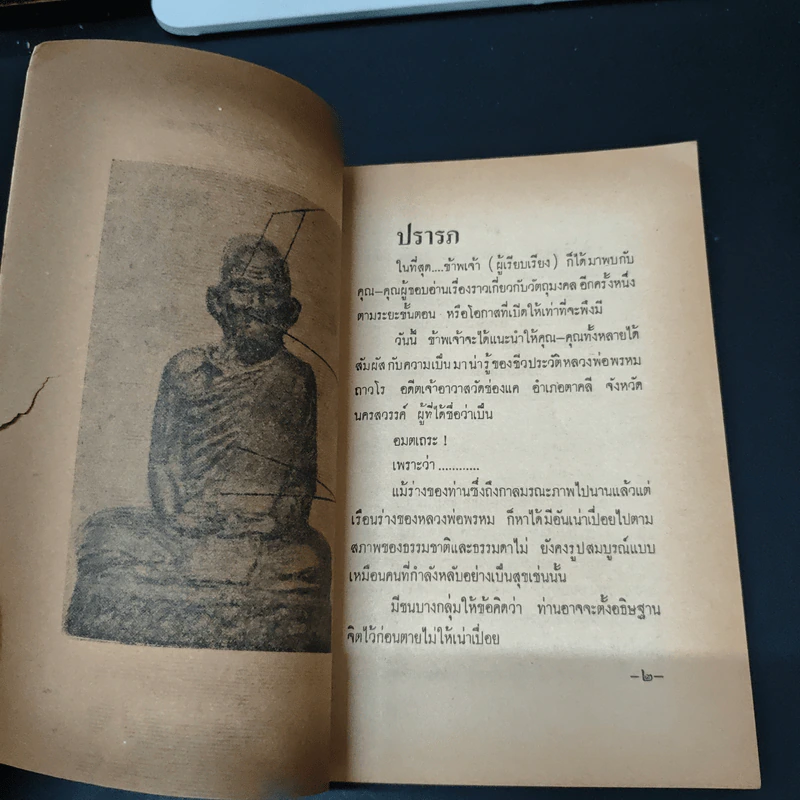 ปรารภ
ในที่สุด....ข้าพเจ้า (ผู้เรียบเรียง) ก็ได้มาพบกับ
คุณ–คุณผู้ชอบอ่านเรื่องราวเกี่ยวกับวัตถุมงคลอีกครั้งหนึ่ง
ตามระยะขั้นตอน หรือโอกาสที่เปิดให้เท่าที่จะพึงมี
วันนี้ ข้าพเจ้าจะได้แนะนำให้คุณ–คุณทั้งหลายได้
สัมผัสกับความเป็นมาน่ารู้ของชีวประวัติหลวงพ่อพรหม
ถาวโร อดีตเจ้าอาวาสวัดช่องแค อำเภอตาคลี จังหวัด
นครสวรรค์ ผู้ที่ได้ชื่อว่าเป็น
อมตเถระ !
เพราะว่า ............
แม้ร่างของท่านซึ่งถึงกาลมรณะภาพไปนานแล้วแต่
เรือนร่างของหลวงพ่อพรหม ก็หาได้มีอันเน่าเปื่อยไปตาม
สภาพของธรรมชาติและธรรมดาไม่ ยังคงรูปสมบูรณ์แบบ
เหมือนคนที่กำลังหลับอย่างเป็นสุขเช่นนั้น
มีชนบางกลุ่มให้ข้อคิดว่า ท่านอาจจะตั้งอธิษฐาน
จิตไว้ก่อนตายไม่ให้เน่าเปื่อย
–๒–